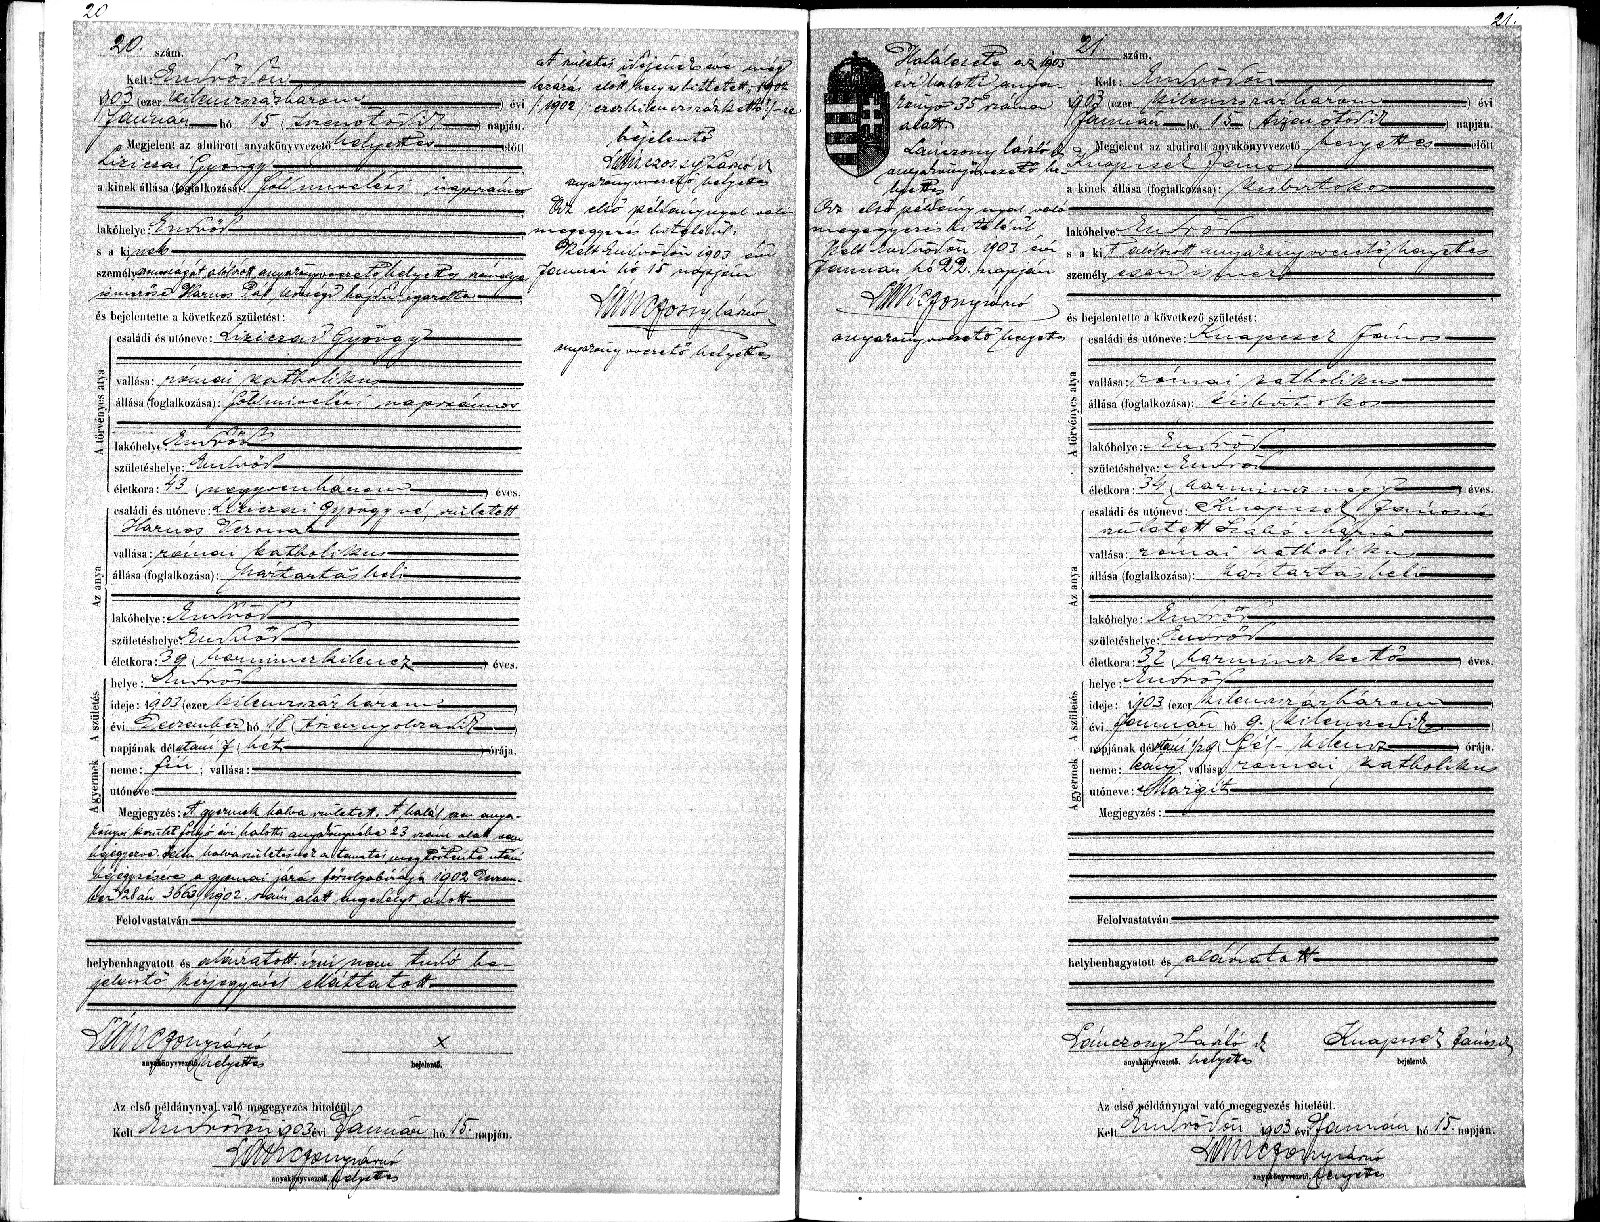 20
20. szám.
Kelt: Endrődön
1903 (ezer kilenczszázhárom) évi
Január hó 15 (tizenötödik) napján.
Megjelent az alulirott anyakönyvvezető helyettes előtt
Liziczai György
a kinek állása (foglalkozása): földmivelési napszámos
lakóhelye: Endrőd
s a kinek
személyazonosságát alólírott anyakönyvvezető helyettes
ismerőse Harnos Pál községi
és bejelentette a következő születést:
A törvényes atya
családi és utóneve: Liziczai György
vallása: római katholikus
állása (foglalkozása): földmivelési napszámos
lakóhelye: Endrőd
születéshelye: Endrőd
életkora: 43 (negyvenhárom) éves.
Az anya
családi és utóneve: Liziczai Györgyné, született
Harnos Verona
vallása: római katholikus
állása (foglalkozása): háztartásbeli
lakóhelye: Endrőd
születéshelye: Endrőd
életkora: 39 (harminczkilencz) éves.
A születés
helye: Endrőd
ideje: 1903 (ezer kilenczszázhárom)
évi Deczember hó 18 (tizennyolczadik)
napjának délutáni 7 (hét) órája.
A gyermek
neme: fiú; vallása:
utóneve:
Megjegyzés: A gyermek halva született. A halál az anya-
könyvi kerület folyó évi halotti anyakönyvébe 23 szám alatt van
bejegyezve. Ezen halvaszületésnek a tanutás megtörténte utáni
bejegyzésére a gyomai járás főszolgabirája 1902 Deczem-
ber 28án 3663/1902. szám alatt engedélyt adott
Felolvastatván
helybenhagyatott és aláiratott, irni nem tudó be-
jelentő kézjegyével elláttatott
Lánczony László
anyakönyvvezető helyettes
x
bejelentő.
Az első példánynyal való megegyezés hiteléül.
Kelt Endrődön 1903 évi Január hó 15. napján.
Lánczony László
anyakönyvvezető helyettes
az születés idejének éve még
lezárás előtt helyesbittetett, 1902
/1902 : ezerkilenczszázkettő/-re
bejelentő
Lánczony László
anyakönyvvezető helyettes
Az első példánynyal való
megegyezés hiteléül.
Kelt Endrődön 1903 évi
Január hó 15 napján
Lánczony László
anyakönyvvezető helyettes
21.
Halálesete az 1903
évi halotti anya-
könyv 35 száma
alatt.
Lánczony László
anyakönyvvezető he-
lyettes
Az első példánynyal való
megegyezés hiteléül
Kelt Endrődön 1903 évi
Január hó 22. napján
Lánczony László
anyakönyvvezető helyettes
21 szám.
Kelt: Endrődön
1903 (ezer kilenczszázhárom) évi
Január hó 15 (tizenötödik) napján.
Megjelent az alulirott anyakönyvvezető helyettes előtt
Knapcsek János
a kinek állása (foglalkozása): kisbirtokos
lakóhelye: Endrőd
s a kit alólirott anyakönyvvezető helyettes
személyesen ismer
és bejelentette a következő születést:
A törvényes atya
családi és utóneve: Knapcsek János
vallása: római katholikus
állása (foglalkozása): kisbirtokos
lakóhelye: Endrőd
születéshelye: Endrőd
életkora: 34 (harmincznégy) éves.
Az anya
családi és utóneve: Knapcsek Jánosné
született Szabó Mária
vallása: római katholikus
állása (foglalkozása): háztartásbeli
lakóhelye: Endrőd
születéshelye: Endrőd
életkora: 32 (harminczkettő) éves.
A születés
helye: Endrőd
ideje: 1903 (ezer kilenczszázhárom)
évi Január hó 9. (kilenczedik)
napjának délutáni 1/29 (fél-kilencz) órája.
A gyermek
neme: leány; vallása: római katholikus
utóneve: Margit
Megjegyzés:
Felolvastatván
helybenhagyatott és aláiratott
Lánczony László
anyakönyvvezető helyettes
Knapcsek János
bejelentő.
Az első példánynyal való megegyezés hiteléül.
Kelt Endrődön 1903 évi Január hó 15. napján.
Lánczony László
anyakönyvvezető helyettes